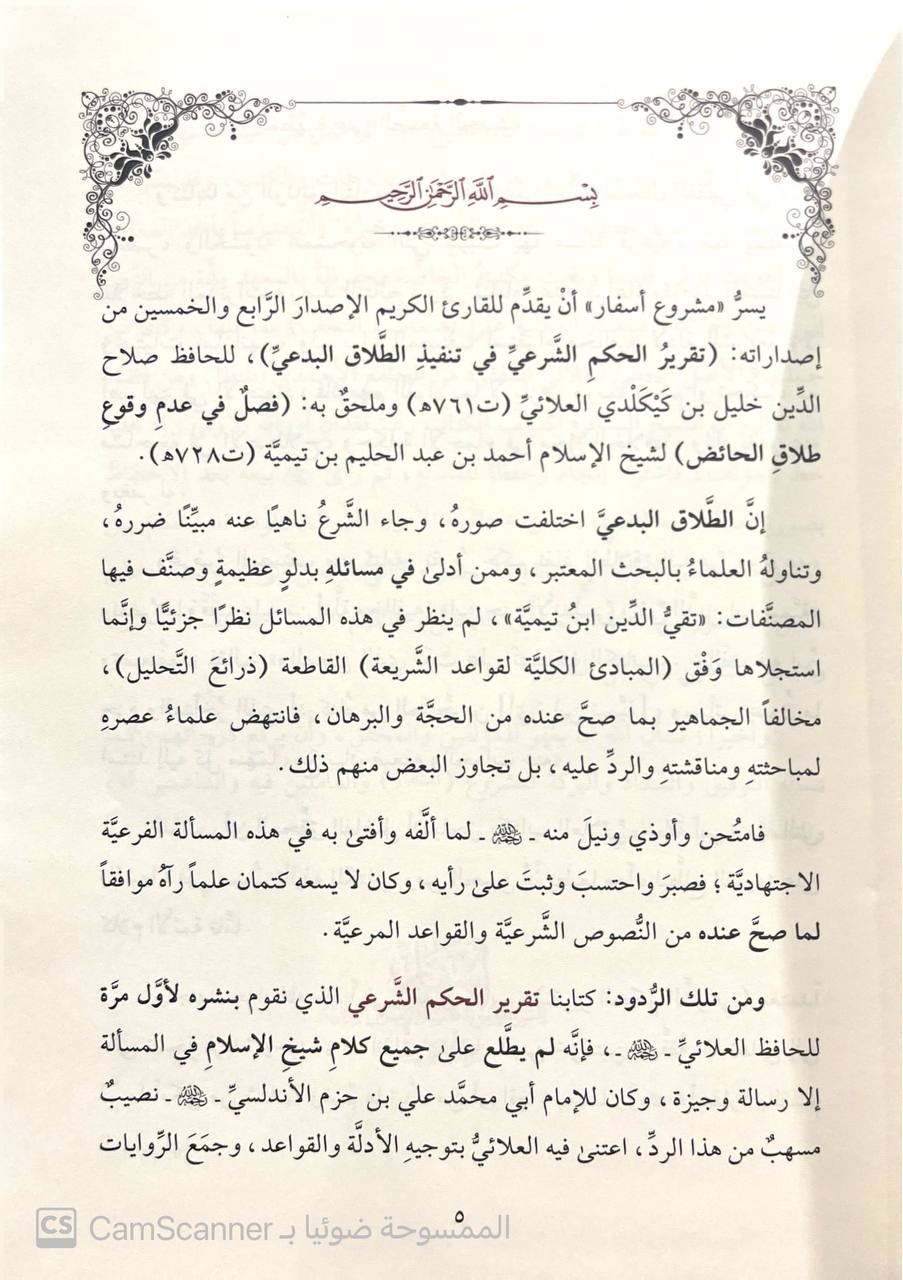 بِسْمِ ٱللَّهِ ٱلرَّحْمَٰنِ ٱلرَّحِيمِ
يسرُّ «مشروع أسفار» أنْ يقدِّم للقارئ الكريم الإصدارَ الرَّابع والخمسين من
إصداراته: (تقريرُ الحكمِ الشَّرعيِّ في تنفيذِ الطَّلاق البدعيِّ)، للحافظ صلاح
الدِّين خليل بن كَيْكَلْدي العلائيِّ (ت٧٦١هـ) وملحقٌ به: (فصلٌ في عدمِ وقوعِ
طلاقِ الحائض) لشيخ الإسلام أحمد بن عبد الحليم بن تيميَّة (ت٧٢٨هـ).
إنَّ الطَّلاق البدعيَّ اختلفت صورهُ، وجاء الشَّرعُ ناهيًا عنه مبيِّنًا ضررهُ،
وتناولهُ العلماءُ بالبحث المعتبر، وممن أدلىٰ في مسائلهِ بدلوٍ عظيمةٍ وصنَّف فيها
المصنَّفات: «تقيُّ الدِّين ابنُ تيميَّة»، لم ينظر في هذه المسائل نظرًا جزئيًّا وإنَّما
استجلاها وَفْق (المبادئ الكليَّة لقواعد الشَّريعة) القاطعة (ذرائعَ التَّحليل)،
مخالفاً الجماهير بما صحَّ عنده من الحجَّة والبرهان، فانتهض علماءُ عصرهِ
لمباحثتهِ ومناقشتهِ والردِّ عليه، بل تجاوز البعض منهم ذلك.
فامتُحن وأوذي ونيلَ منه ـ رحمه الله ـ لما ألَّفه وأفتىٰ به في هذه المسألة الفرعيَّة
الاجتهاديَّة؛ فصبرَ واحتسبَ وثبتَ علىٰ رأيه، وكان لا يسعه كتمان علماً رآهُ موافقاً
لما صحَّ عنده من النُّصوص الشَّرعيَّة والقواعد المرعيَّة.
ومن تلك الرُّدود: كتابنا تقرير الحكم الشَّرعي الذي نقوم بنشره لأوَّل مرَّة
للحافظ العلائيِّ ـ رحمه الله ـ، فإنَّه لم يطَّلع علىٰ جميع كلامِ شيخِ الإسلامِ في المسألة
إلا رسالة وجيزة، وكان للإمام أبي محمَّد علي بن حزم الأندلسيِّ ـ رحمه الله ـ نصيبٌ
مسهبٌ من هذا الردِّ، اعتنىٰ فيه العلائيُّ بتوجيهِ الأدلَّة والقواعد، وجمَعَ الرِّوايات
٥
CS CamScanner الممسوحة ضوئيا بـ